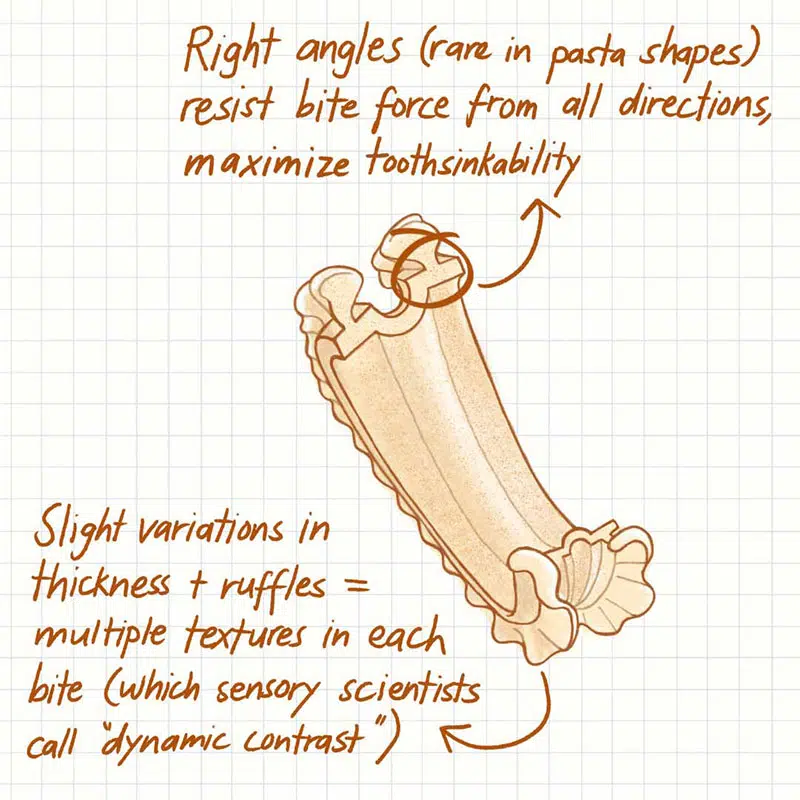 Right angles (rare in pasta shapes)
resist bite force from all directions,
maximize toothsinkability
Slight variations in
thickness + ruffles =
multiple textures in each
bite (which sensory scientists
call "dynamic contrast")